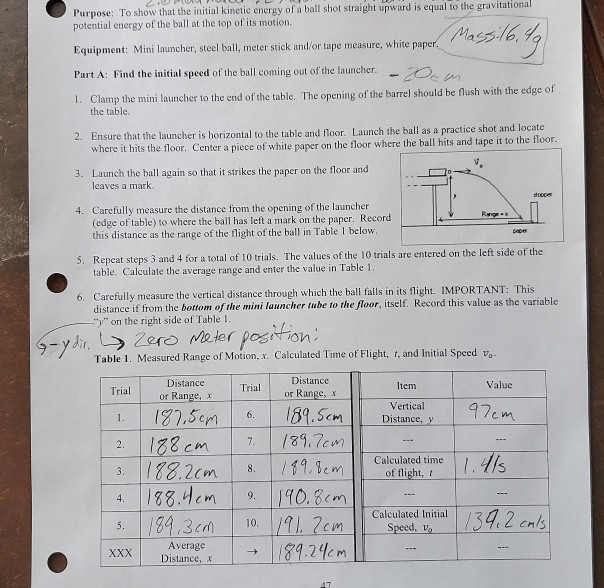 Purpose: To show that the initial kinetic energy of a ball shot straight upward is equal to the gravitational
potential energy of the ball at the top of its motion.
Mass: 16.4g
Equipment: Mini launcher, steel ball, meter stick and/or tape measure, white paper.
Part A: Find the initial speed of the ball coming out of the launcher. - 20cm
1. Clamp the mini launcher to the end of the table. The opening of the barrel should be flush with the edge of
the table.
2. Ensure that the launcher is horizontal to the table and floor. Launch the ball as a practice shot and locate
where it hits the floor. Center a piece of white paper on the floor where the ball hits and tape it to the floor.
3. Launch the ball again so that it strikes the paper on the floor and
leaves a mark.
4. Carefully measure the distance from the opening of the launcher
(edge of table) to where the ball has left a mark on the paper. Record
this distance as the range of the flight of the ball in Table 1 below.
Vo
stopper
y
Range = x
paper
5. Repeat steps 3 and 4 for a total of 10 trials. The values of the 10 trials are entered on the left side of the
table. Calculate the average range and enter the value in Table 1.
6. Carefully measure the vertical distance through which the ball falls in its flight. IMPORTANT: This
distance if from the bottom of the mini launcher tube to the floor, itself. Record this value as the variable
"y" on the right side of Table 1.
-y dir. Zero Meter position:
Table 1. Measured Range of Motion, x. Calculated Time of Flight, t, and Initial Speed vo.
Trial Distance or Range, x Trial Distance or Range, x Item Value
1. 187.5cm 6. 189.5cm Vertical Distance, y 97cm
2. 188cm 7. 189.7cm --- ---
3. 188.2cm 8. 189.8cm Calculated time of flight, t 1.41s
4. 188.4cm 9. 190.8cm --- ---
5. 189.3cm 10. 191.2cm Calculated Initial Speed, vo 134.2 cm/s
XXX Average Distance, x → 189.24cm --- ---
47